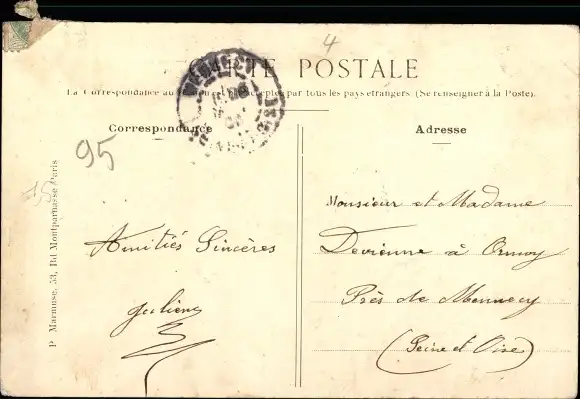 4
CARTE POSTALE
La Correspondance au est pas acceptée par tous les pays etrangers. (Se renseigner à la Poste).
Correspondance
Adresse
95
Monsieur et Madame
Amitiés Sincères
Devienne à Ormoy
Julien
Près de Mennecy
(Seine et Oise)
P. Marmuse, 53, Bd Montparnasse Paris